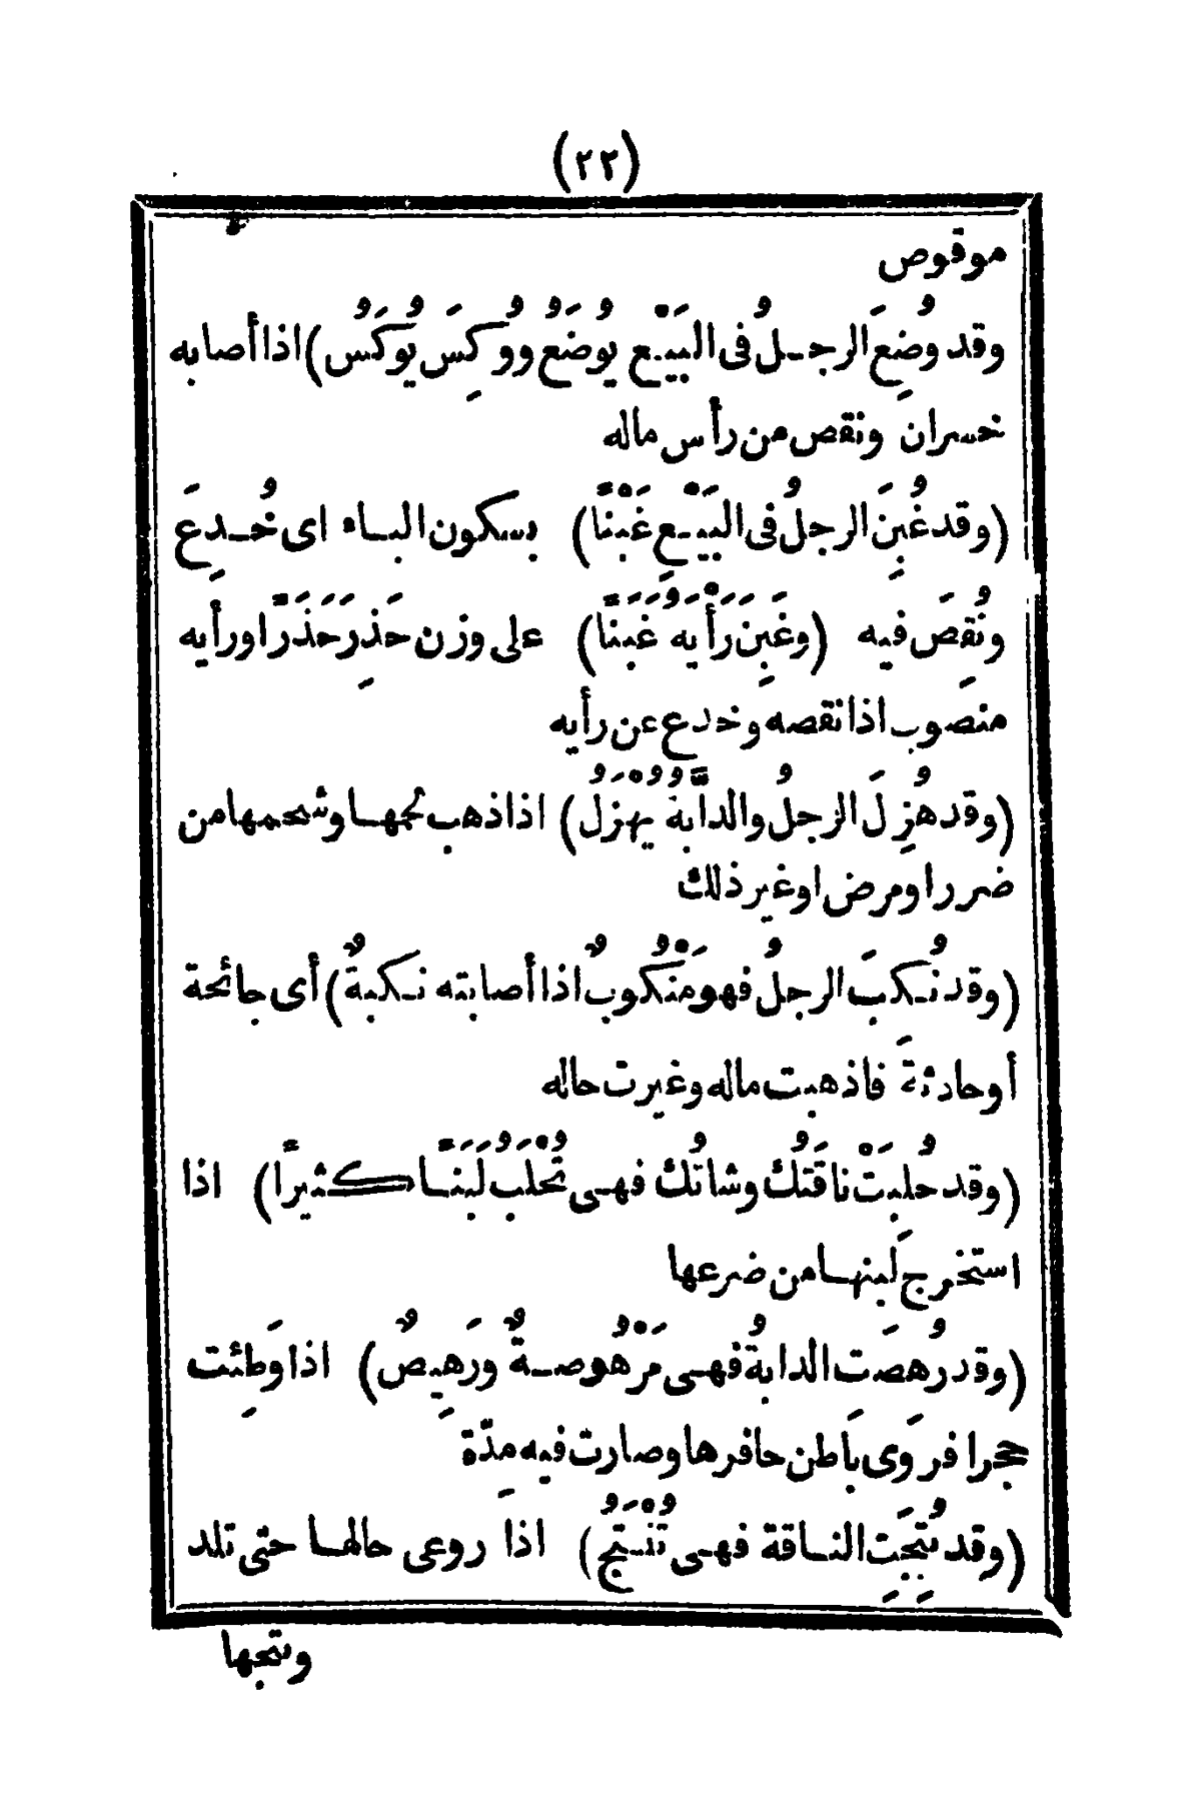 (٢٢)
موقوص
وقد وُضِعَ الرجـلُ فى البَيْـع يُوضَعُ ووُكِسَ يُوكَسُ) اذا أصابه
خسران ونقص من رأس ماله
(وقد غُبِنَ الرجلُ فى البَيْـعِ غَبْنًا) بسكون البـاء اى خُـدِعَ
ونُقِصَ فيه (وغَبِنَ رَأْيَه غَبَنًا) على وزن حَذِرَ حَذَرًا ورأيه
منصوب اذا نقصه وخدع عن رأيه
(وقد هُزِلَ الرجلُ والدابَّةُ يُهْزَلُ) اذا ذهب لحمهـا وشحمها من
ضرر او مرض او غير ذلك
(وقد نُـكبَ الرجلُ فهو مَنْكُوبٌ اذا أصابته نـكبةٌ) أى جائحة
أو حادثة فاذهبت ماله وغيرت حاله
(وقد حُلِبَتْ ناقَتُكَ وشاتُك فهـى تُحْلَبُ لَبَنًـا كثيرًا) اذا
استخرج لبنهـا من ضرعها
(وقد رُهصَت الدابةُ فهـى مَرْهُوصـةٌ ورَهِيصٌ) اذا وَطِئت
حجرا فروَى باطن حافرها وصارت فيه مِدّة
(وقد نُتِجَتِ النـاقة فهـى تُنْـتَجُ) اذا روعى حالهـا حتى تلد
ونتجها